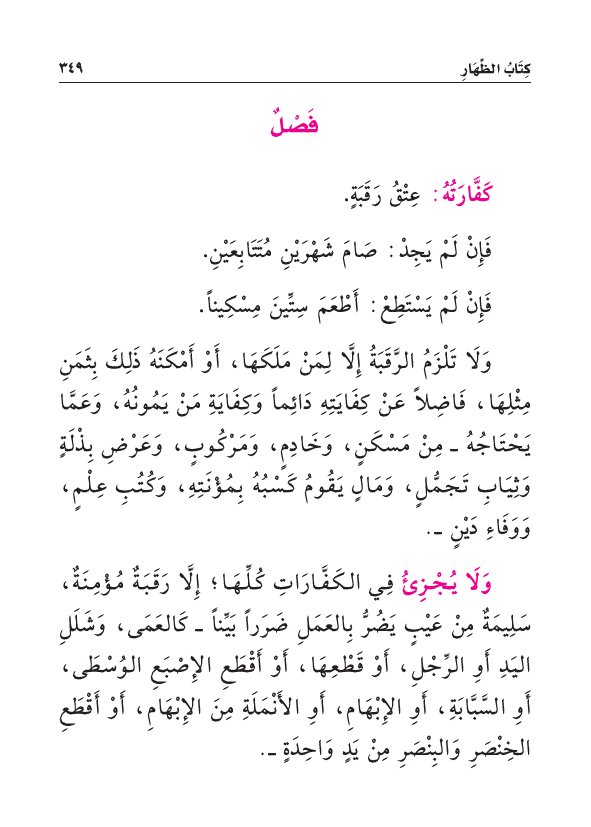 كِتَابُ الظِّهَارِ ٣٤٩
فَصْلٌ
كَفَّارَتُهُ: عِتْقُ رَقَبَةٍ.
فَإِنْ لَمْ يَجِدْ: صَامَ شَهْرَيْنِ مُتَتَابِعَيْنِ.
فَإِنْ لَمْ يَسْتَطِعْ: أَطْعَمَ سِتِّينَ مِسْكِيناً.
وَلَا تَلْزَمُ الرَّقَبَةُ إِلَّا لِمَنْ مَلَكَهَا، أَوْ أَمْكَنَهُ ذَلِكَ بِثَمَنِ
مِثْلِهَا، فَاضِلاً عَنْ كِفَايَتِهِ دَائِماً وَكِفَايَةِ مَنْ يَمُونُهُ، وَعَمَّا
يَحْتَاجُهُ ـ مِنْ مَسْكَنٍ، وَخَادِمٍ، وَمَرْكُوبٍ، وَعَرْضِ بِذْلَةٍ
وَثِيَابِ تَجَمُّلٍ، وَمَالٍ يَقُومُ كَسْبُهُ بِمُؤْنَتِهِ، وَكُتُبِ عِلْمٍ،
وَوَفَاءِ دَيْنٍ ـ.
وَلَا يُجْزِئُ فِي الكَفَّارَاتِ كُلِّهَا؛ إِلَّا رَقَبَةٌ مُؤْمِنَةٌ،
سَلِيمَةٌ مِنْ عَيْبٍ يَضُرُّ بِالعَمَلِ ضَرَراً بَيِّناً ـ كَالعَمَى، وَشَلَلِ
اليَدِ أَوِ الرِّجْلِ، أَوْ قَطْعِهَا، أَوْ أَقْطَعِ الإِصْبَعِ الوُسْطَى،
أَوِ السَّبَّابَةِ، أَوِ الإِبْهَامِ، أَوِ الأَنْمَلَةِ مِنَ الإِبْهَامِ، أَوْ أَقْطَعِ
الخِنْصَرِ وَالبِنْصَرِ مِنْ يَدٍ وَاحِدَةٍ ـ.